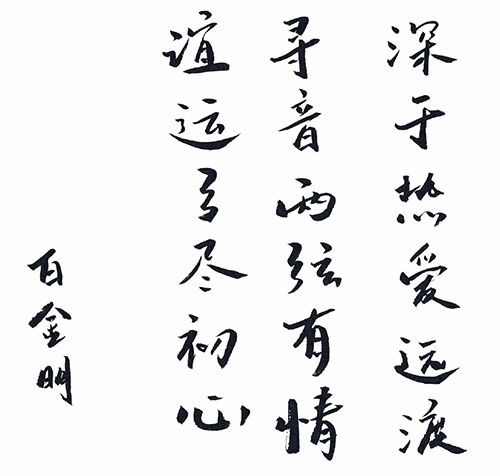 深于热爱远渡
寻音两弦有情
谊运弓尽初心
百金明